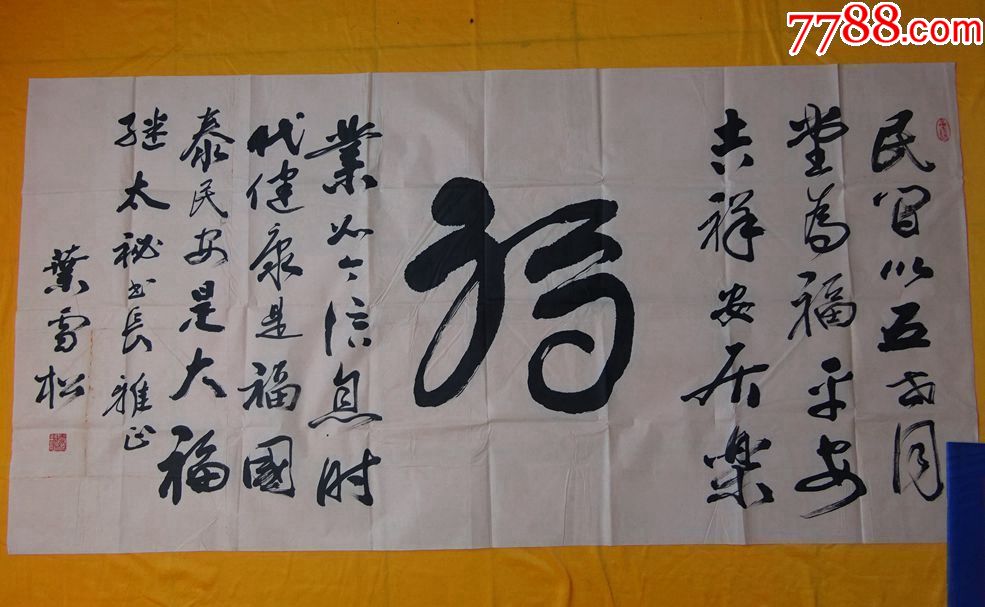 7788.com
民間以五世同
堂為福平安
吉祥安居樂
福
業如今信息時
代健康是福國
泰民安是大福
继太秘书長雅正
葉雪松